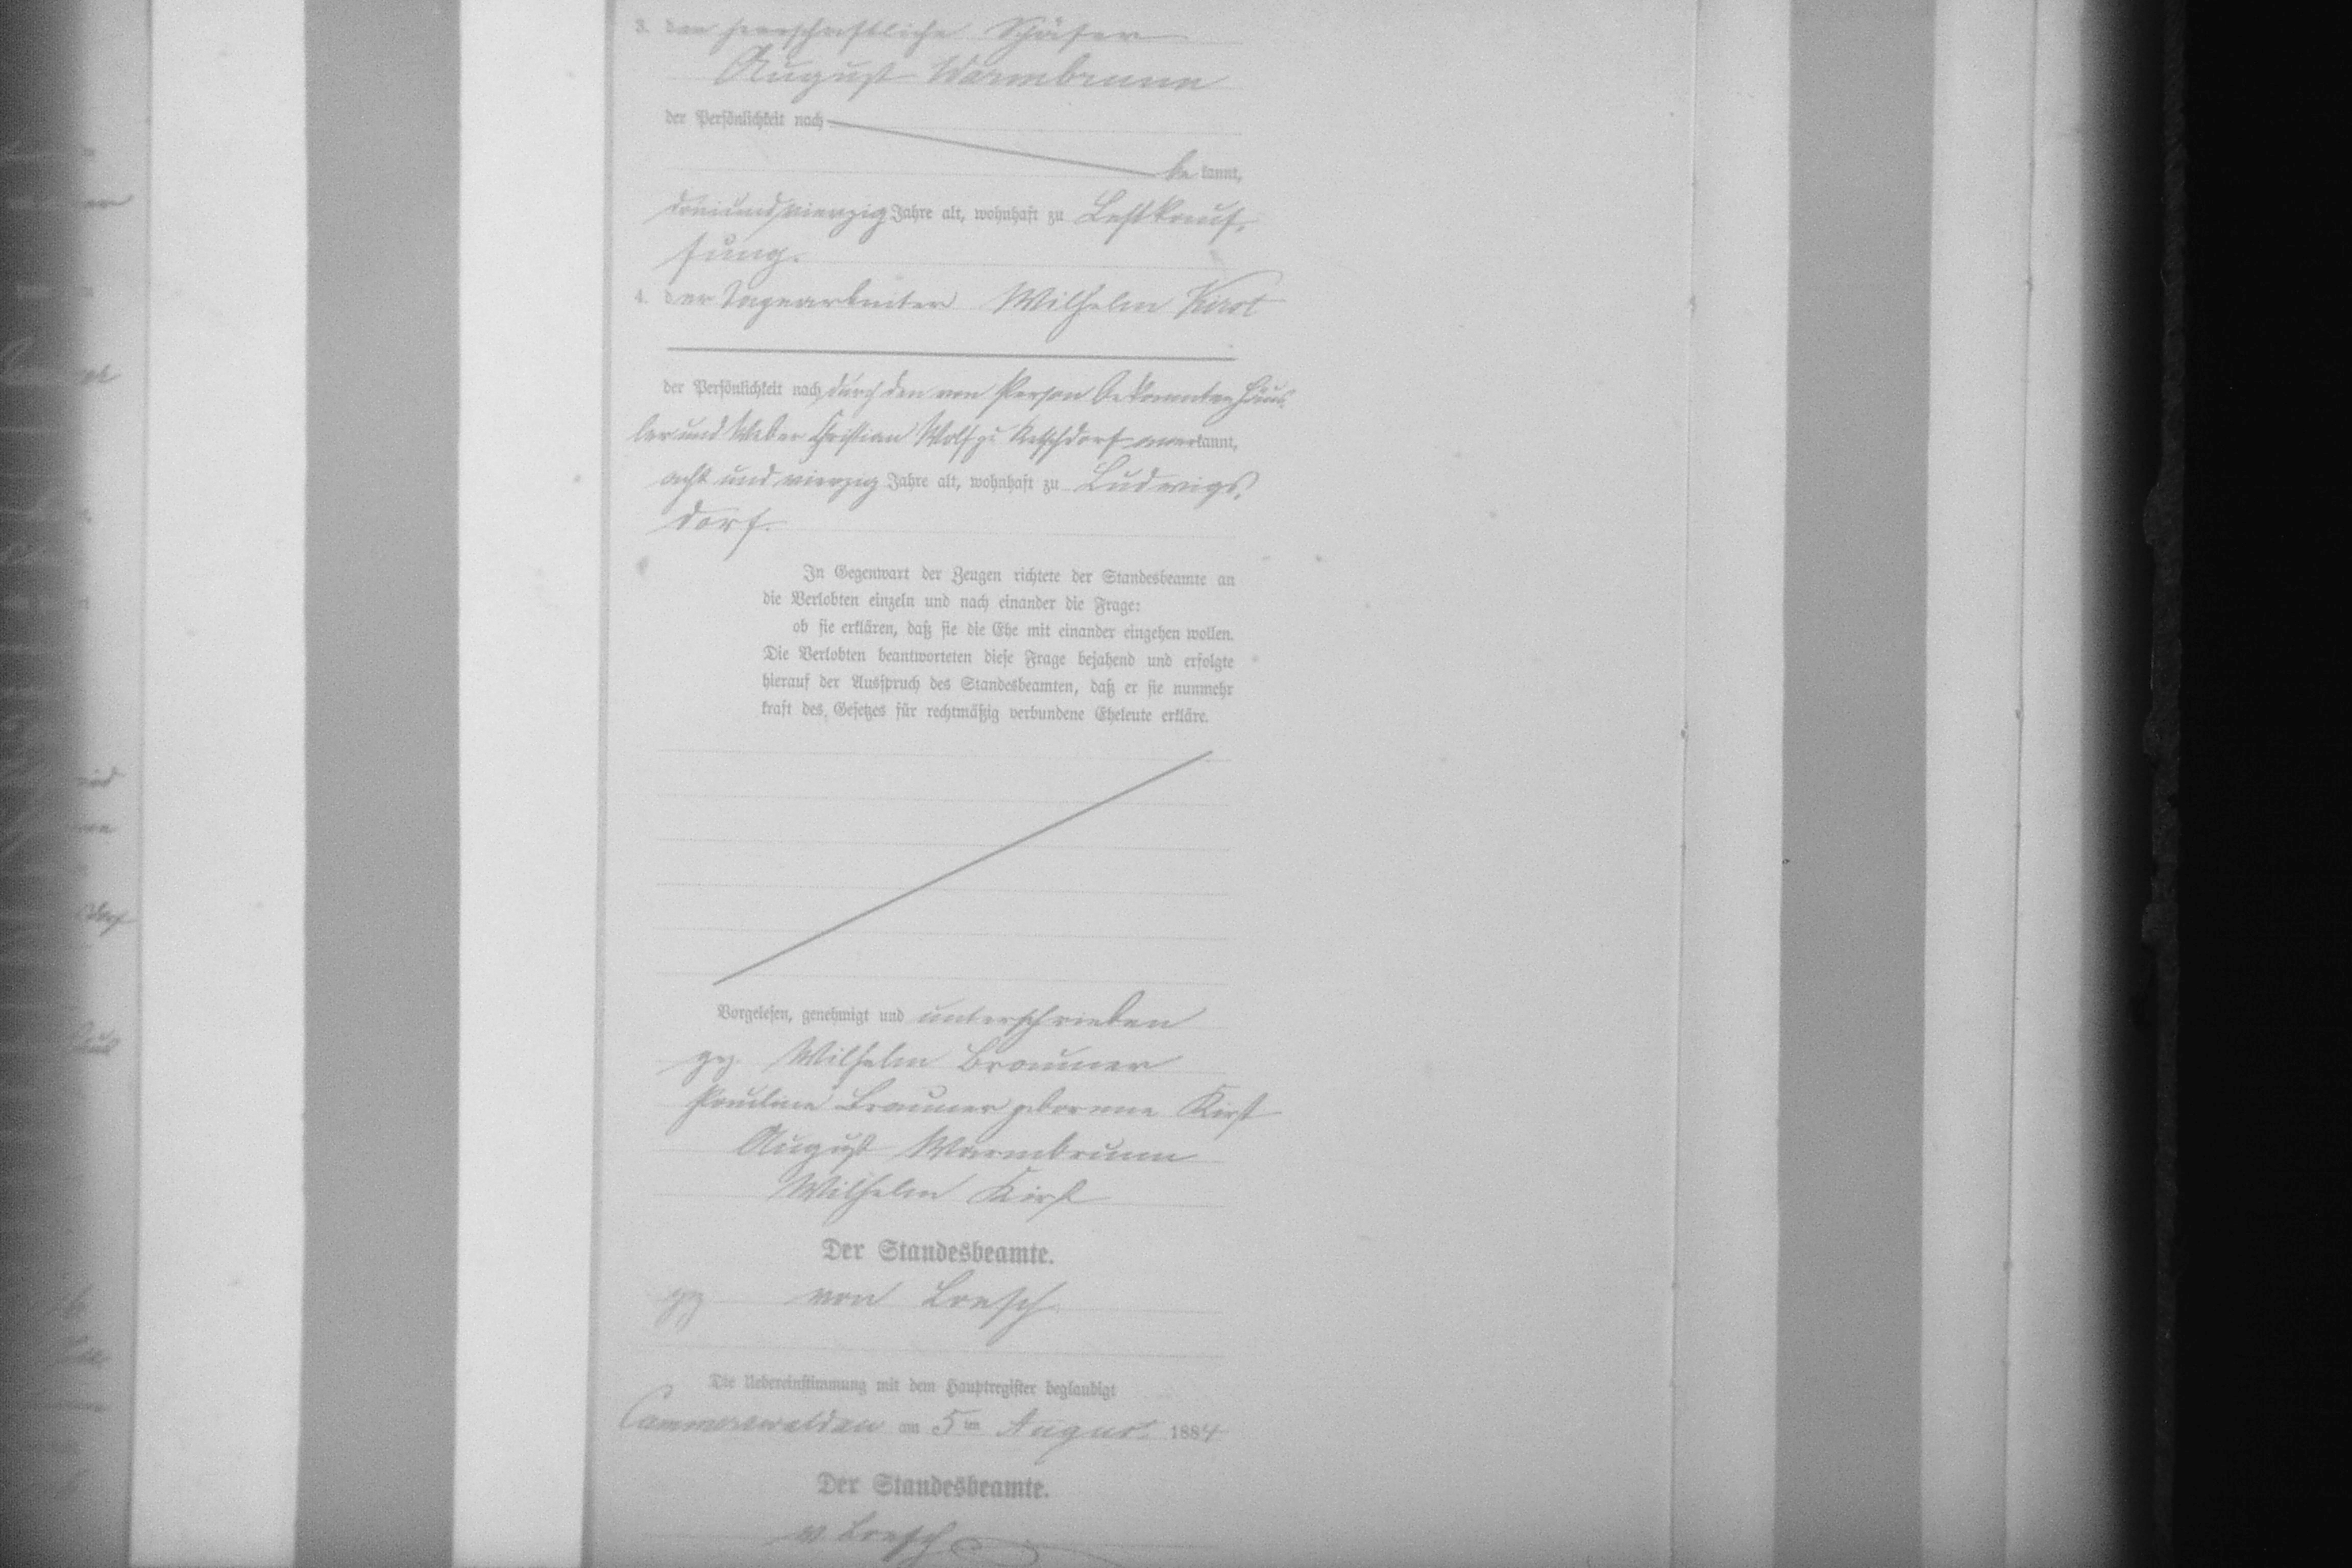 3. der herrschaftliche Schäfer
August Warmbrunn
der Persönlichkeit nach
be kannt,
dreiundvierzig Jahre alt, wohnhaft zu
sung.
4. der Tagearbeiter Wilhelm Kirst
der Persönlichkeit nach durch den von Person bekannten Häus-
ler und Weber Christian Wolf zu Ketschdorf anerkannt,
acht und vierzig Jahre alt, wohnhaft zu Ludwigs-
dorf.
In Gegenwart der Zeugen richtete der Standesbeamte an
die Verlobten einzeln und nach einander die Frage:
ob sie erklären, daß sie die Ehe mit einander eingehen wollen.
Die Verlobten beantworteten diese Frage bejahend und erfolgte
hierauf der Ausspruch des Standesbeamten, daß er sie nunmehr
kraft des Gesetzes für rechtmäßig verbundene Eheleute erkläre.
Vorgelesen, genehmigt und unterschrieben
gez. Wilhelm Brauner
Pauline Brauner geborene Kirst
August Warmbrunn
Wilhelm Kirst
Der Standesbeamte.
gez von Loesch
Die Uebereinstimmung mit dem Hauptregister beglaubigt
Cammerswaldau am 5ten August 1884
Der Standesbeamte.
v. Loesch